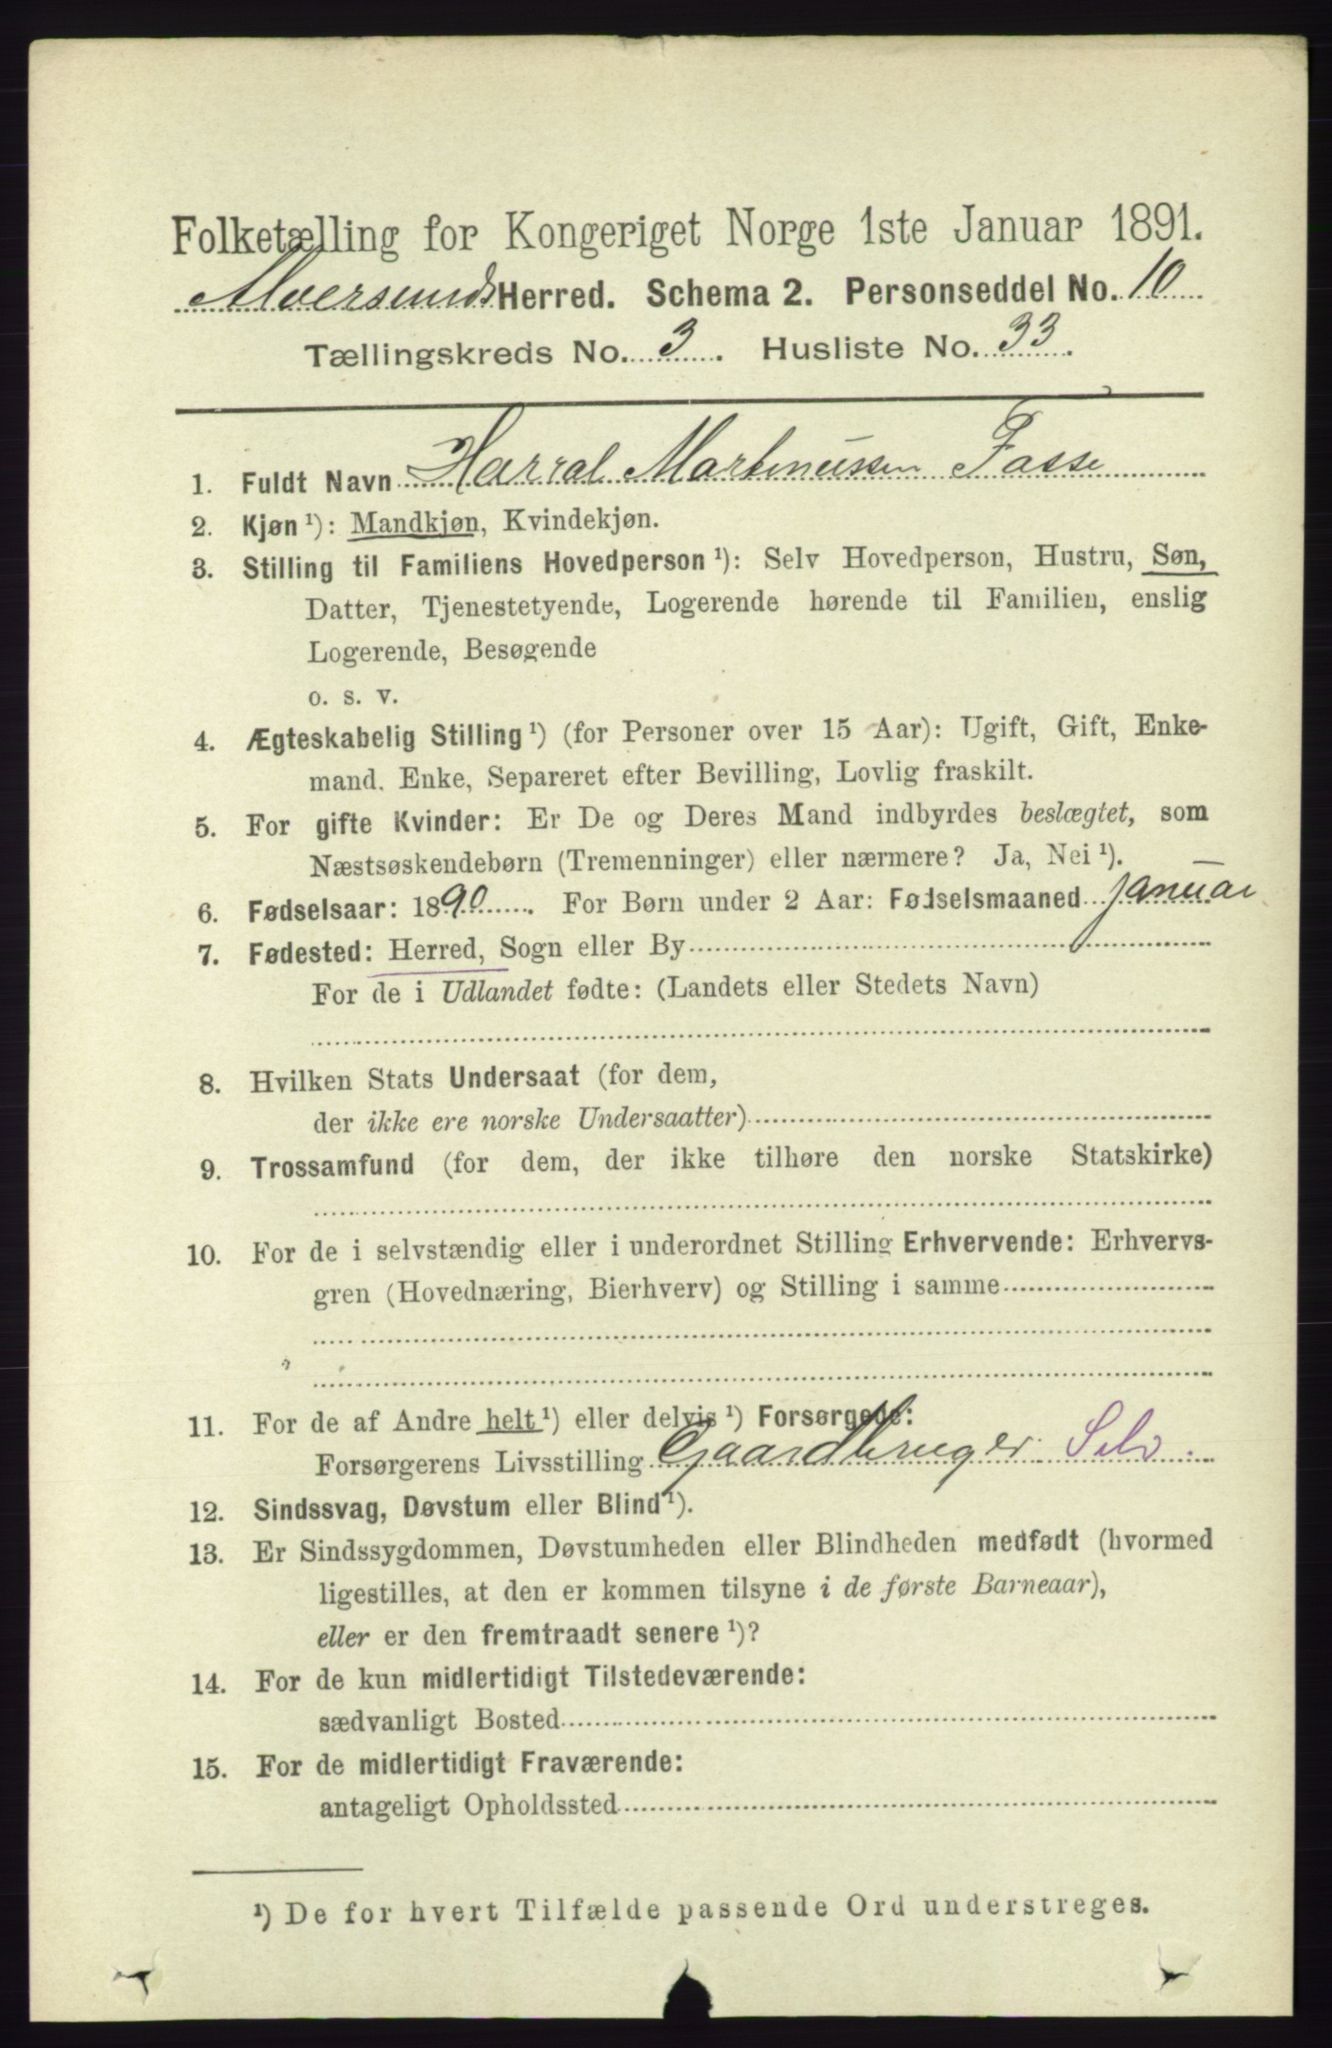 Folketælling for Kongeriget Norge 1ste Januar 1891.
Alversunds Herred. Schema 2. Personseddel No. 10
Tællingskreds No. 3. Husliste No. 33.
1. Fuldt Navn Harral Martinussen Fosse
2. Kjøn ¹): Mandkjøn, Kvindekjøn.
3. Stilling til Familiens Hovedperson ¹): Selv Hovedperson, Hustru, Søn,
Datter, Tjenestetyende, Logerende hørende til Familien, enslig
Logerende, Besøgende
o. s. v.
4. Ægteskabelig Stilling ¹) (for Personer over 15 Aar): Ugift, Gift, Enke-
mand, Enke, Separeret efter Bevilling, Lovlig fraskilt.
5. For gifte Kvinder: Er De og Deres Mand indbyrdes beslægtet, som
Næstsøskendebørn (Tremenninger) eller nærmere? Ja, Nei ¹).
6. Fødselsaar: 1890. For Børn under 2 Aar: Fødselsmaaned Januar
7. Fødested: Herred, Sogn eller By
For de i Udlandet fødte: (Landets eller Stedets Navn)
8. Hvilken Stats Undersaat (for dem,
der ikke ere norske Undersaatter)
9. Trossamfund (for dem, der ikke tilhøre den norske Statskirke)
10. For de i selvstændig eller i underordnet Stilling Erhvervende: Erhvervs-
gren (Hovednæring, Bierhverv) og Stilling i samme
11. For de af Andre helt ¹) eller delvis ¹) Forsørgede:
Forsørgerens Livsstilling Gaardbruger Selv.
12. Sindssvag, Døvstum eller Blind ¹).
13. Er Sindssygdommen, Døvstumheden eller Blindheden medfødt (hvormed
ligestilles, at den er kommen tilsyne i de første Barneaar),
eller er den fremtraadt senere ¹)?
14. For de kun midlertidigt Tilstedeværende:
sædvanligt Bosted
15. For de midlertidigt Fraværende:
antageligt Opholdssted
¹) De for hvert Tilfælde passende Ord understreges.